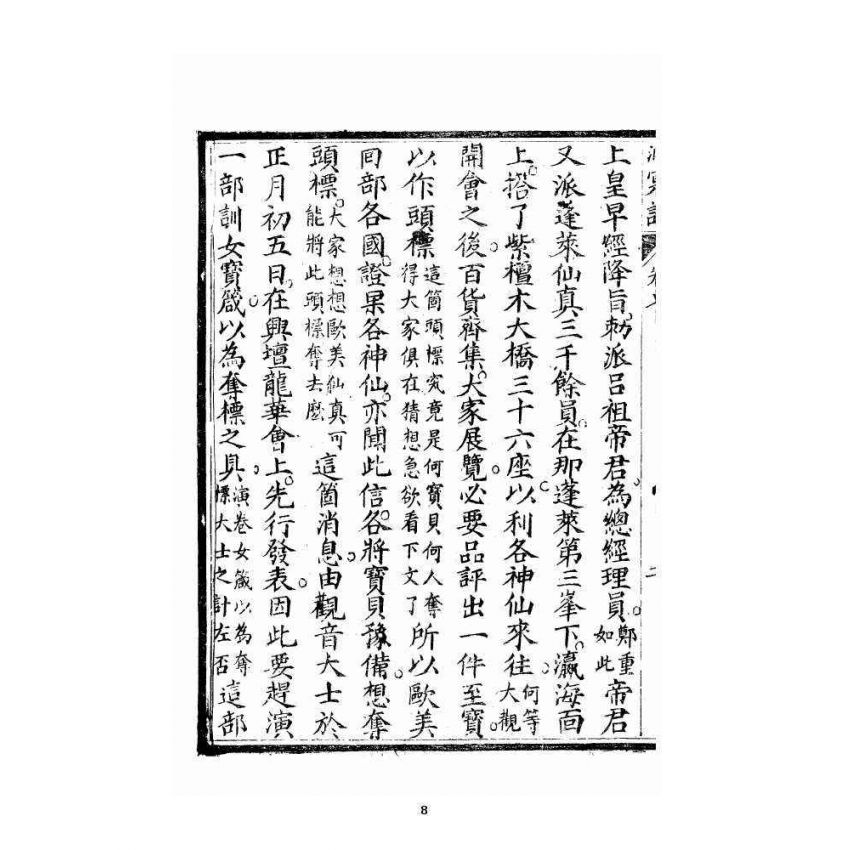 上皇早經降旨。勅派呂祖帝君。為總經理員。鄭重如此帝君
又派蓬萊仙真三千餘員。在那蓬萊第三峯下。瀛海面
上。搭了紫檀木大橋三十六座。以利各神仙來往。何等大觀
開會之後。百貨齊集。大家展覽。必要品評出一件至寶。
以作頭標這箇頭標究竟是何寶貝何人奪得大家俱在猜想急欲看下文了所以歐美
回部各國。證果各神仙。亦聞此信。各將寶貝豫備。想奪
頭標。大家想想歐美仙真可能將此頭標奪去麼這箇消息。由觀音大士於
正月初五日。在興壇龍華會上。先行發表。因此要趕演
一部訓女寶箴。以為奪標之具。演卷女箴以為奪標大士之計左否這部
8